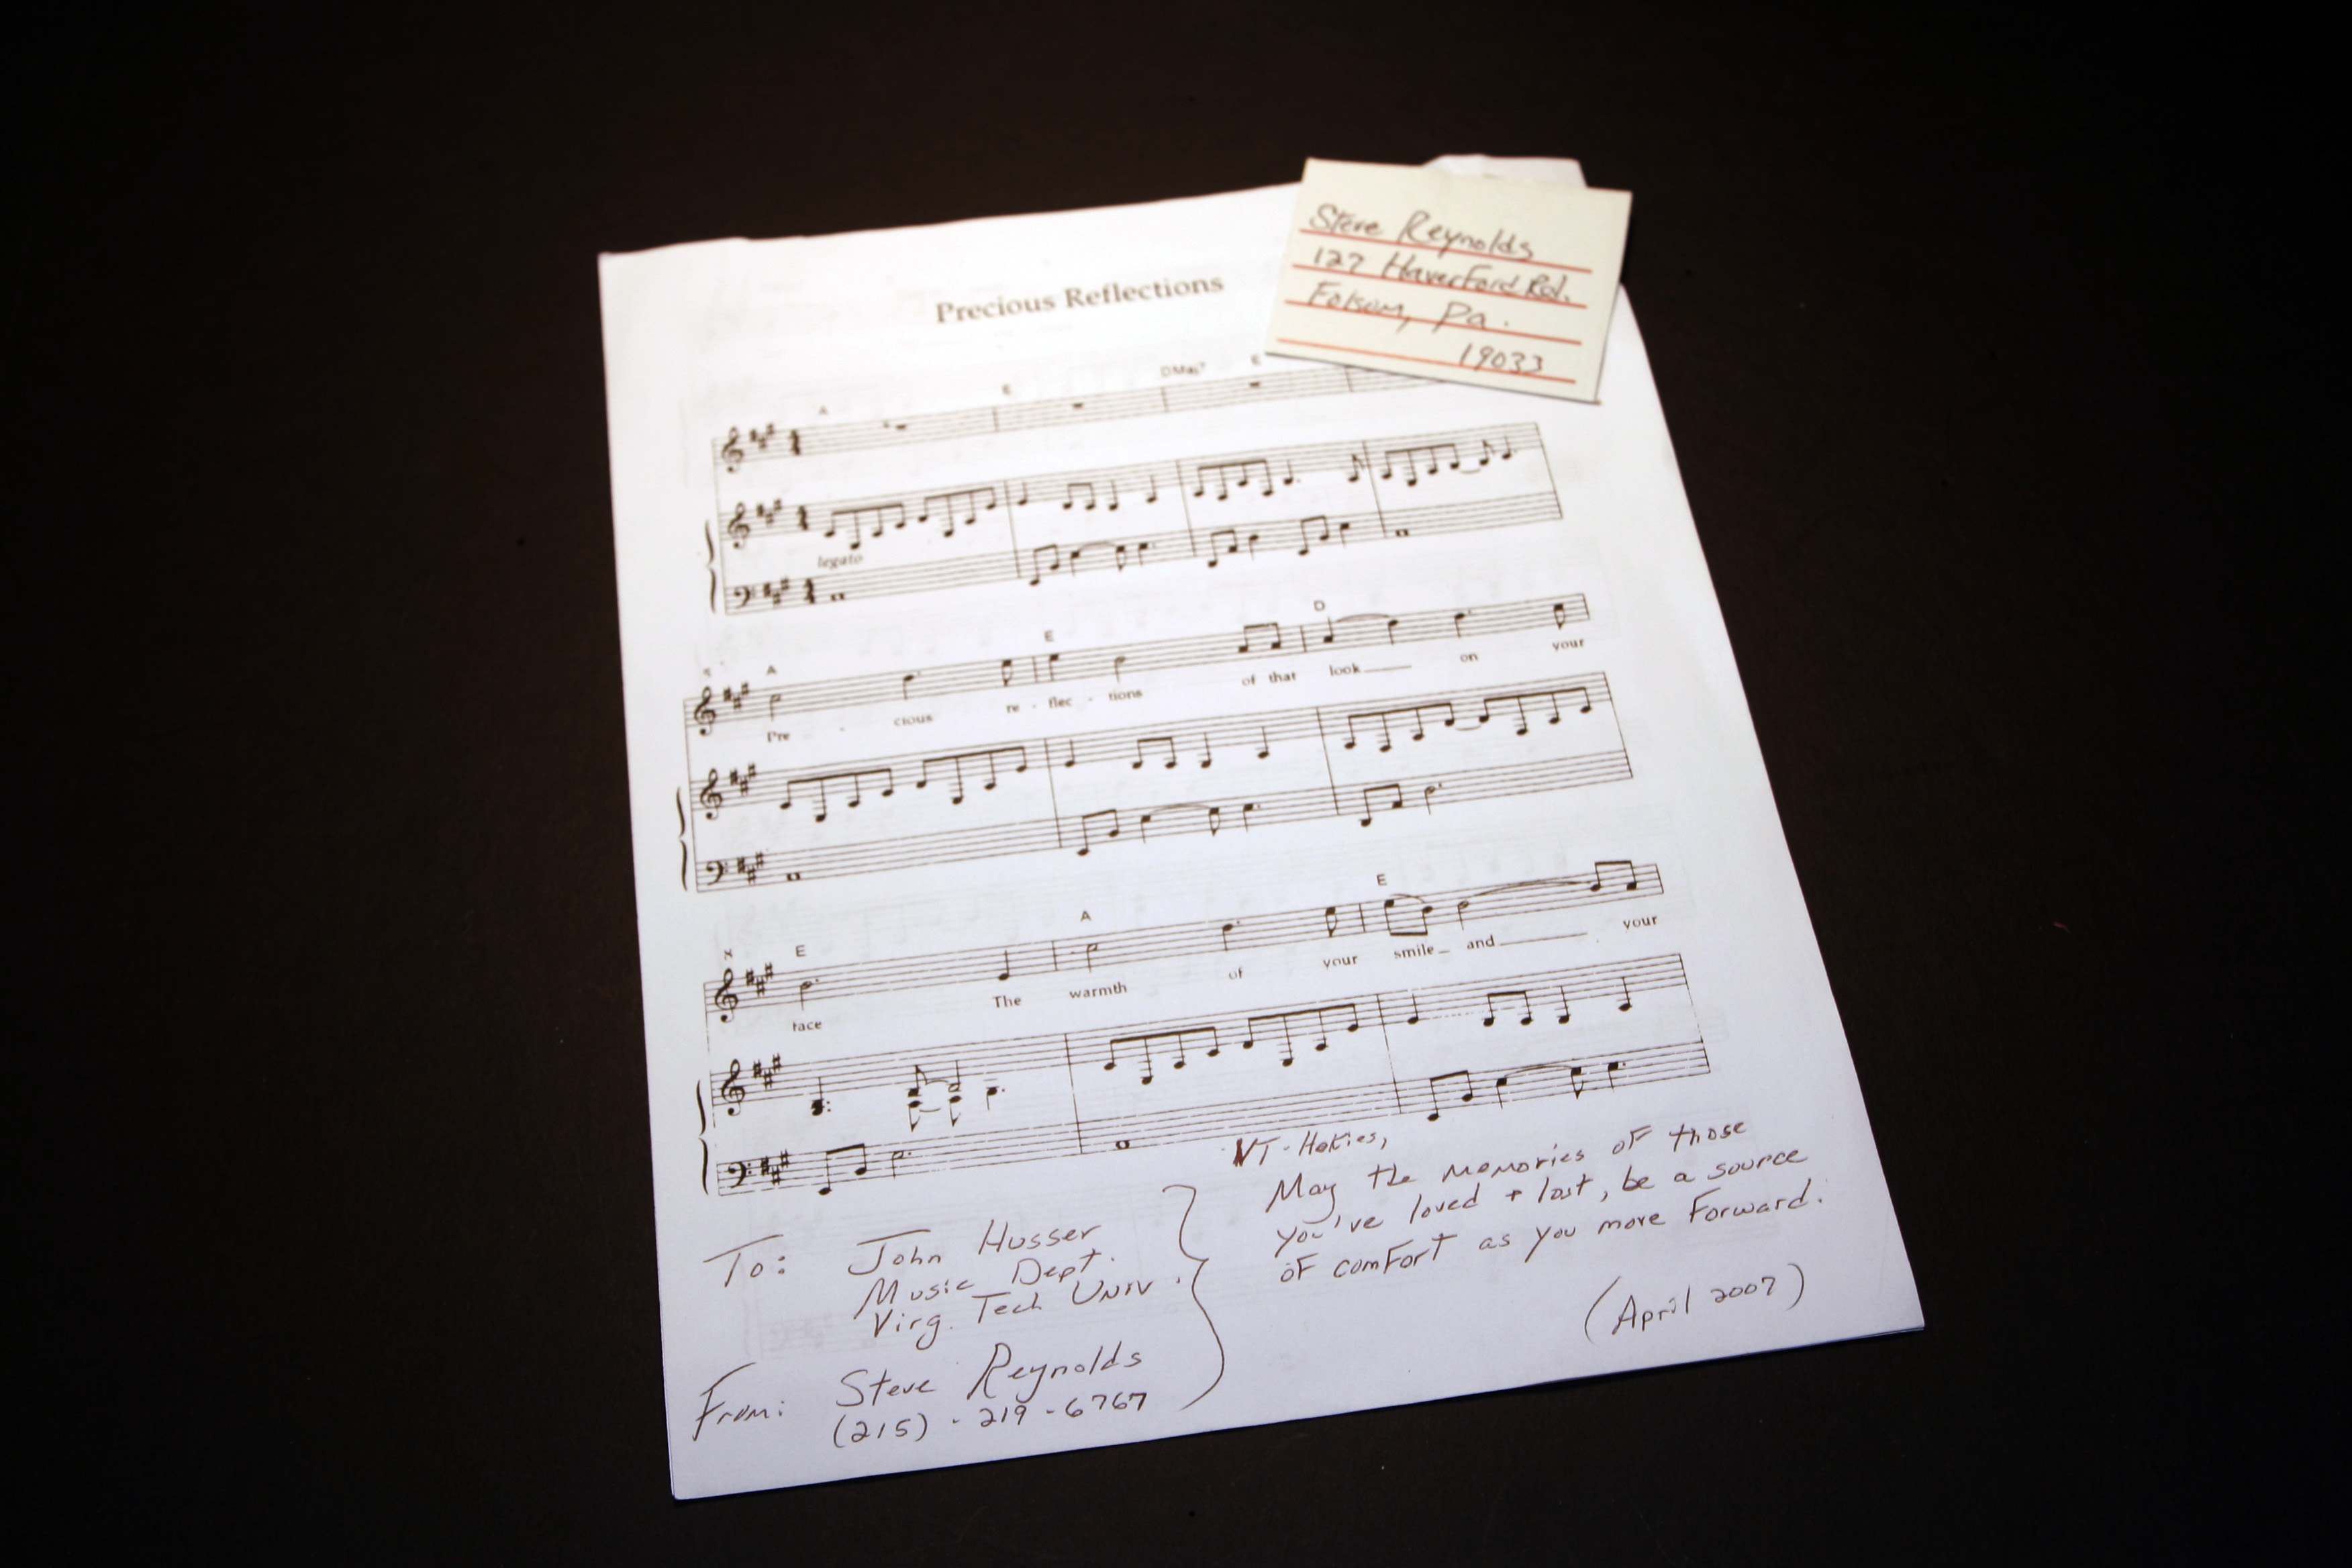 Steve Reynolds
127 Haverford Rd.
Folsom, Pa.
19033
Precious Reflections
A E DMaj7 E
legato
A E D
Pre - cious re - flec - tions of that look on your
E A E
face The warmth of your smile and your
VT-Hokies,
May the memories of those
you've loved + lost, be a source
of comfort as you move forward.
(April 2007)
To: John Husser
Music Dept.
Virg. Tech Univ.
From: Steve Reynolds
(215) - 219 - 6767